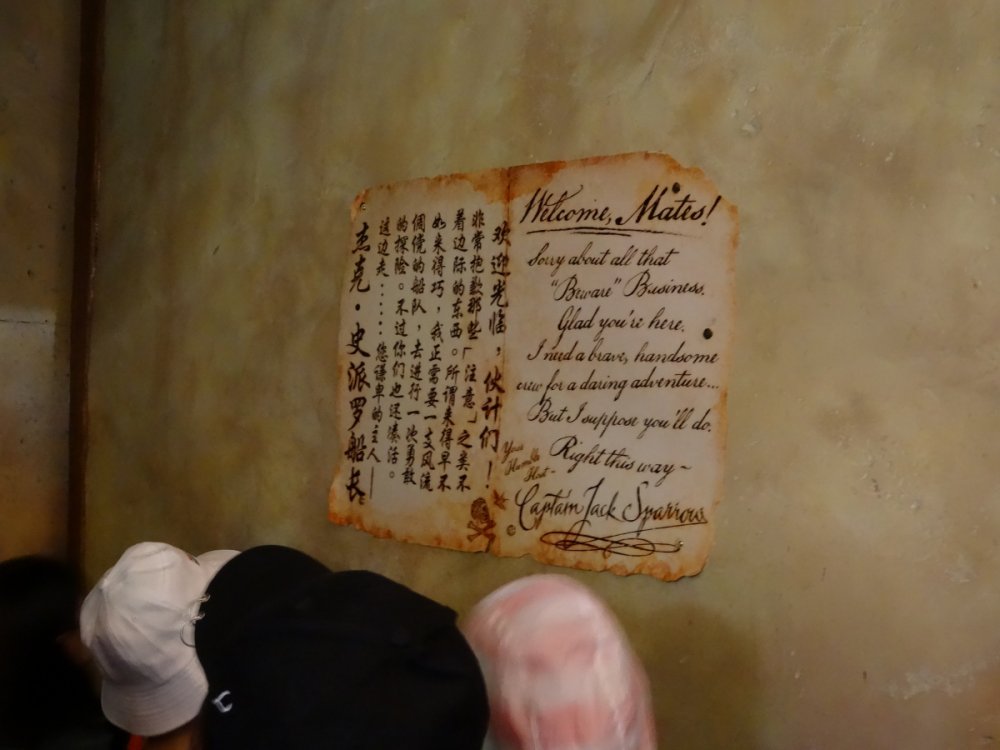 欢迎光临，伙计们！
非常抱歉那些「注意」之类不
着边际的东西。所谓来得早不
如来得巧，我正需要一支风流
倜傥的船队，去进行一次勇敢
的探险。不过你们也还凑活。
这边走·····您谦卑的主人——
杰克·史派罗船长
Welcome, Mates!
Sorry about all that
"Beware" Business.
Glad you're here.
I need a brave, handsome
crew for a daring adventure...
But I suppose you'll do.
Right this way ~
Your
Humble
Host ~
Captain Jack Sparrow